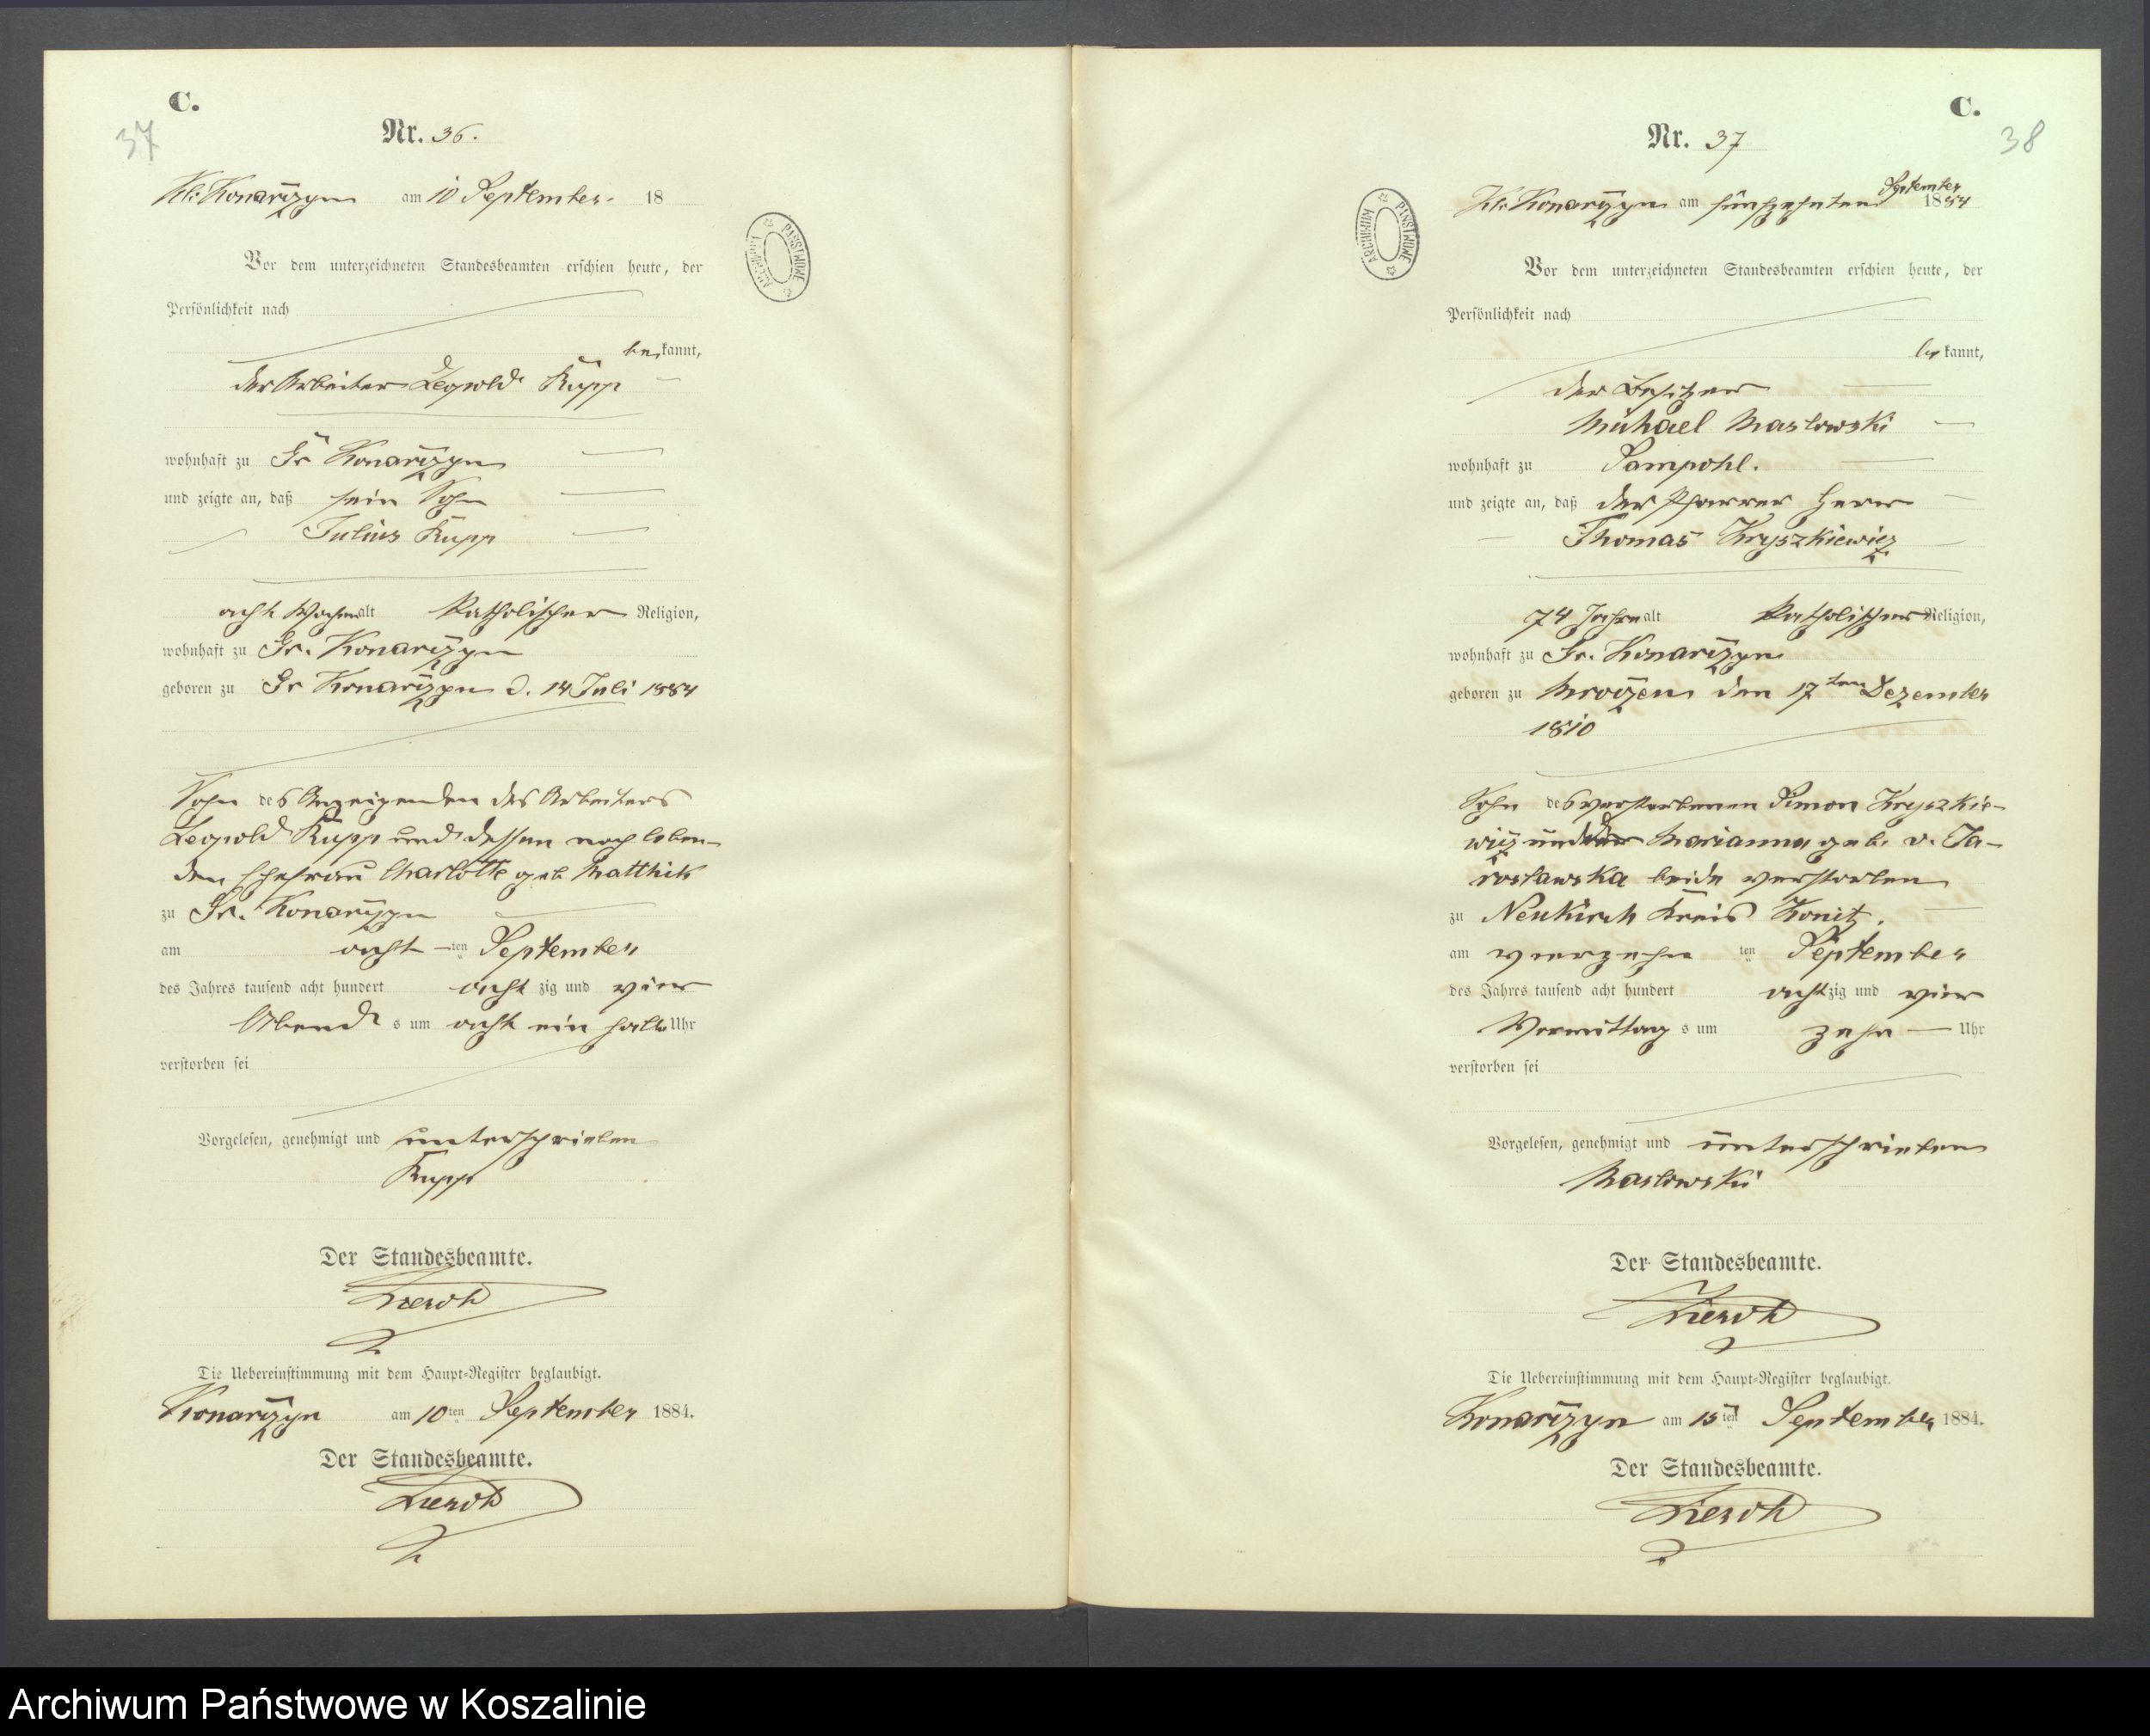 C.
37
Nr. 36.
Kl: Konarczyn am 10 September. 18
Vor dem unterzeichneten Standesbeamten erschien heute, der
Persönlichkeit nach
be kannt,
der Arbeiter Leopold Kupp
wohnhaft zu Gr Konarczyn
und zeigte an, daß sein Sohn
Julius Kupp
acht Wochen alt katholischer Religion,
wohnhaft zu Gr. Konarczyn
geboren zu Gr Konarczyn d. 14 Juli 1884
Sohn des Anzeigenden des Arbeiters
Leopold Kupp und dessen noch leben-
den Ehefrau Charlotte geb
zu Gr. Konarczyn
am acht ten September
des Jahres tausend acht hundert acht zig und vier
Abend s um acht ein halb Uhr
verstorben sei
Vorgelesen, genehmigt und unterschrieben
Kupp
Der Standesbeamte.
Die Uebereinstimmung mit dem Haupt-Register beglaubigt.
Konarczyn am 10ten September 1884.
Der Standesbeamte.
ARCHIWUM PAŃSTWOWE
C.
38
Nr. 37
Kl: Konarczyn am fünfzehnten September 1884
Vor dem unterzeichneten Standesbeamten erschien heute, der
Persönlichkeit nach
be kannt,
der Besitzer
Michael Masłowski
wohnhaft zu Sampohl.
und zeigte an, daß der Pfarrer Herr
Thomas Kryszkiewicz
74 Jahre alt katholischer Religion,
wohnhaft zu Gr. Konarczyn
geboren zu Mroczen den 17ten Dezember
1810
Sohn des verstorbenen Simon Kryszkie-
wicz und der Marianna geb. v. Ja-
rosławska beide verstorben
zu Neukirch Kreis Konitz.
am vierzehn ten September
des Jahres tausend acht hundert acht zig und vier
Vormittag s um zehn Uhr
verstorben sei
Vorgelesen, genehmigt und unterschrieben
Masłowski
Der Standesbeamte.
Die Uebereinstimmung mit dem Haupt-Register beglaubigt.
Konarczyn am 15ten September 1884.
Der Standesbeamte.
ARCHIWUM PAŃSTWOWE
Archiwum Państwowe w Koszalinie